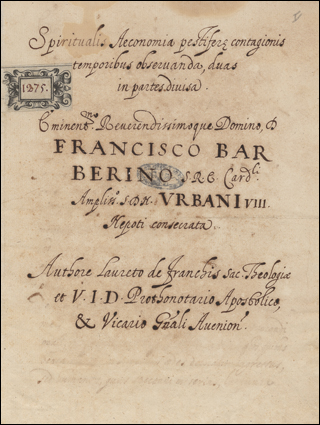 Spiritualis Aeconomia pestiferę contagionis
temporibus obseruanda, duas
in partes diuisa.
1375.
Eminen.mo Reuerendissimoque Domino, D
FRANCISCO BAR
BERINO S.R.E. Card.li
Ampliss. S.D.N. VRBANI VIII.
Nepoti consecrata.
Authore Laureto de Franchis Sac. Theologiæ
et V.I.D. Prothonotario Apostolico,
& Vicario Gn̄ali Auenion.